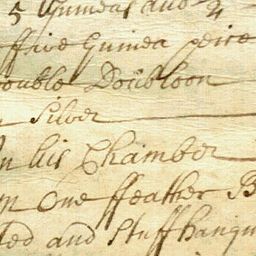 5 Guineas and 4
ffive Guinea peice
ouble Doubloon
Silver
In his Chamber
One ffeather B
ed and Stuff hang